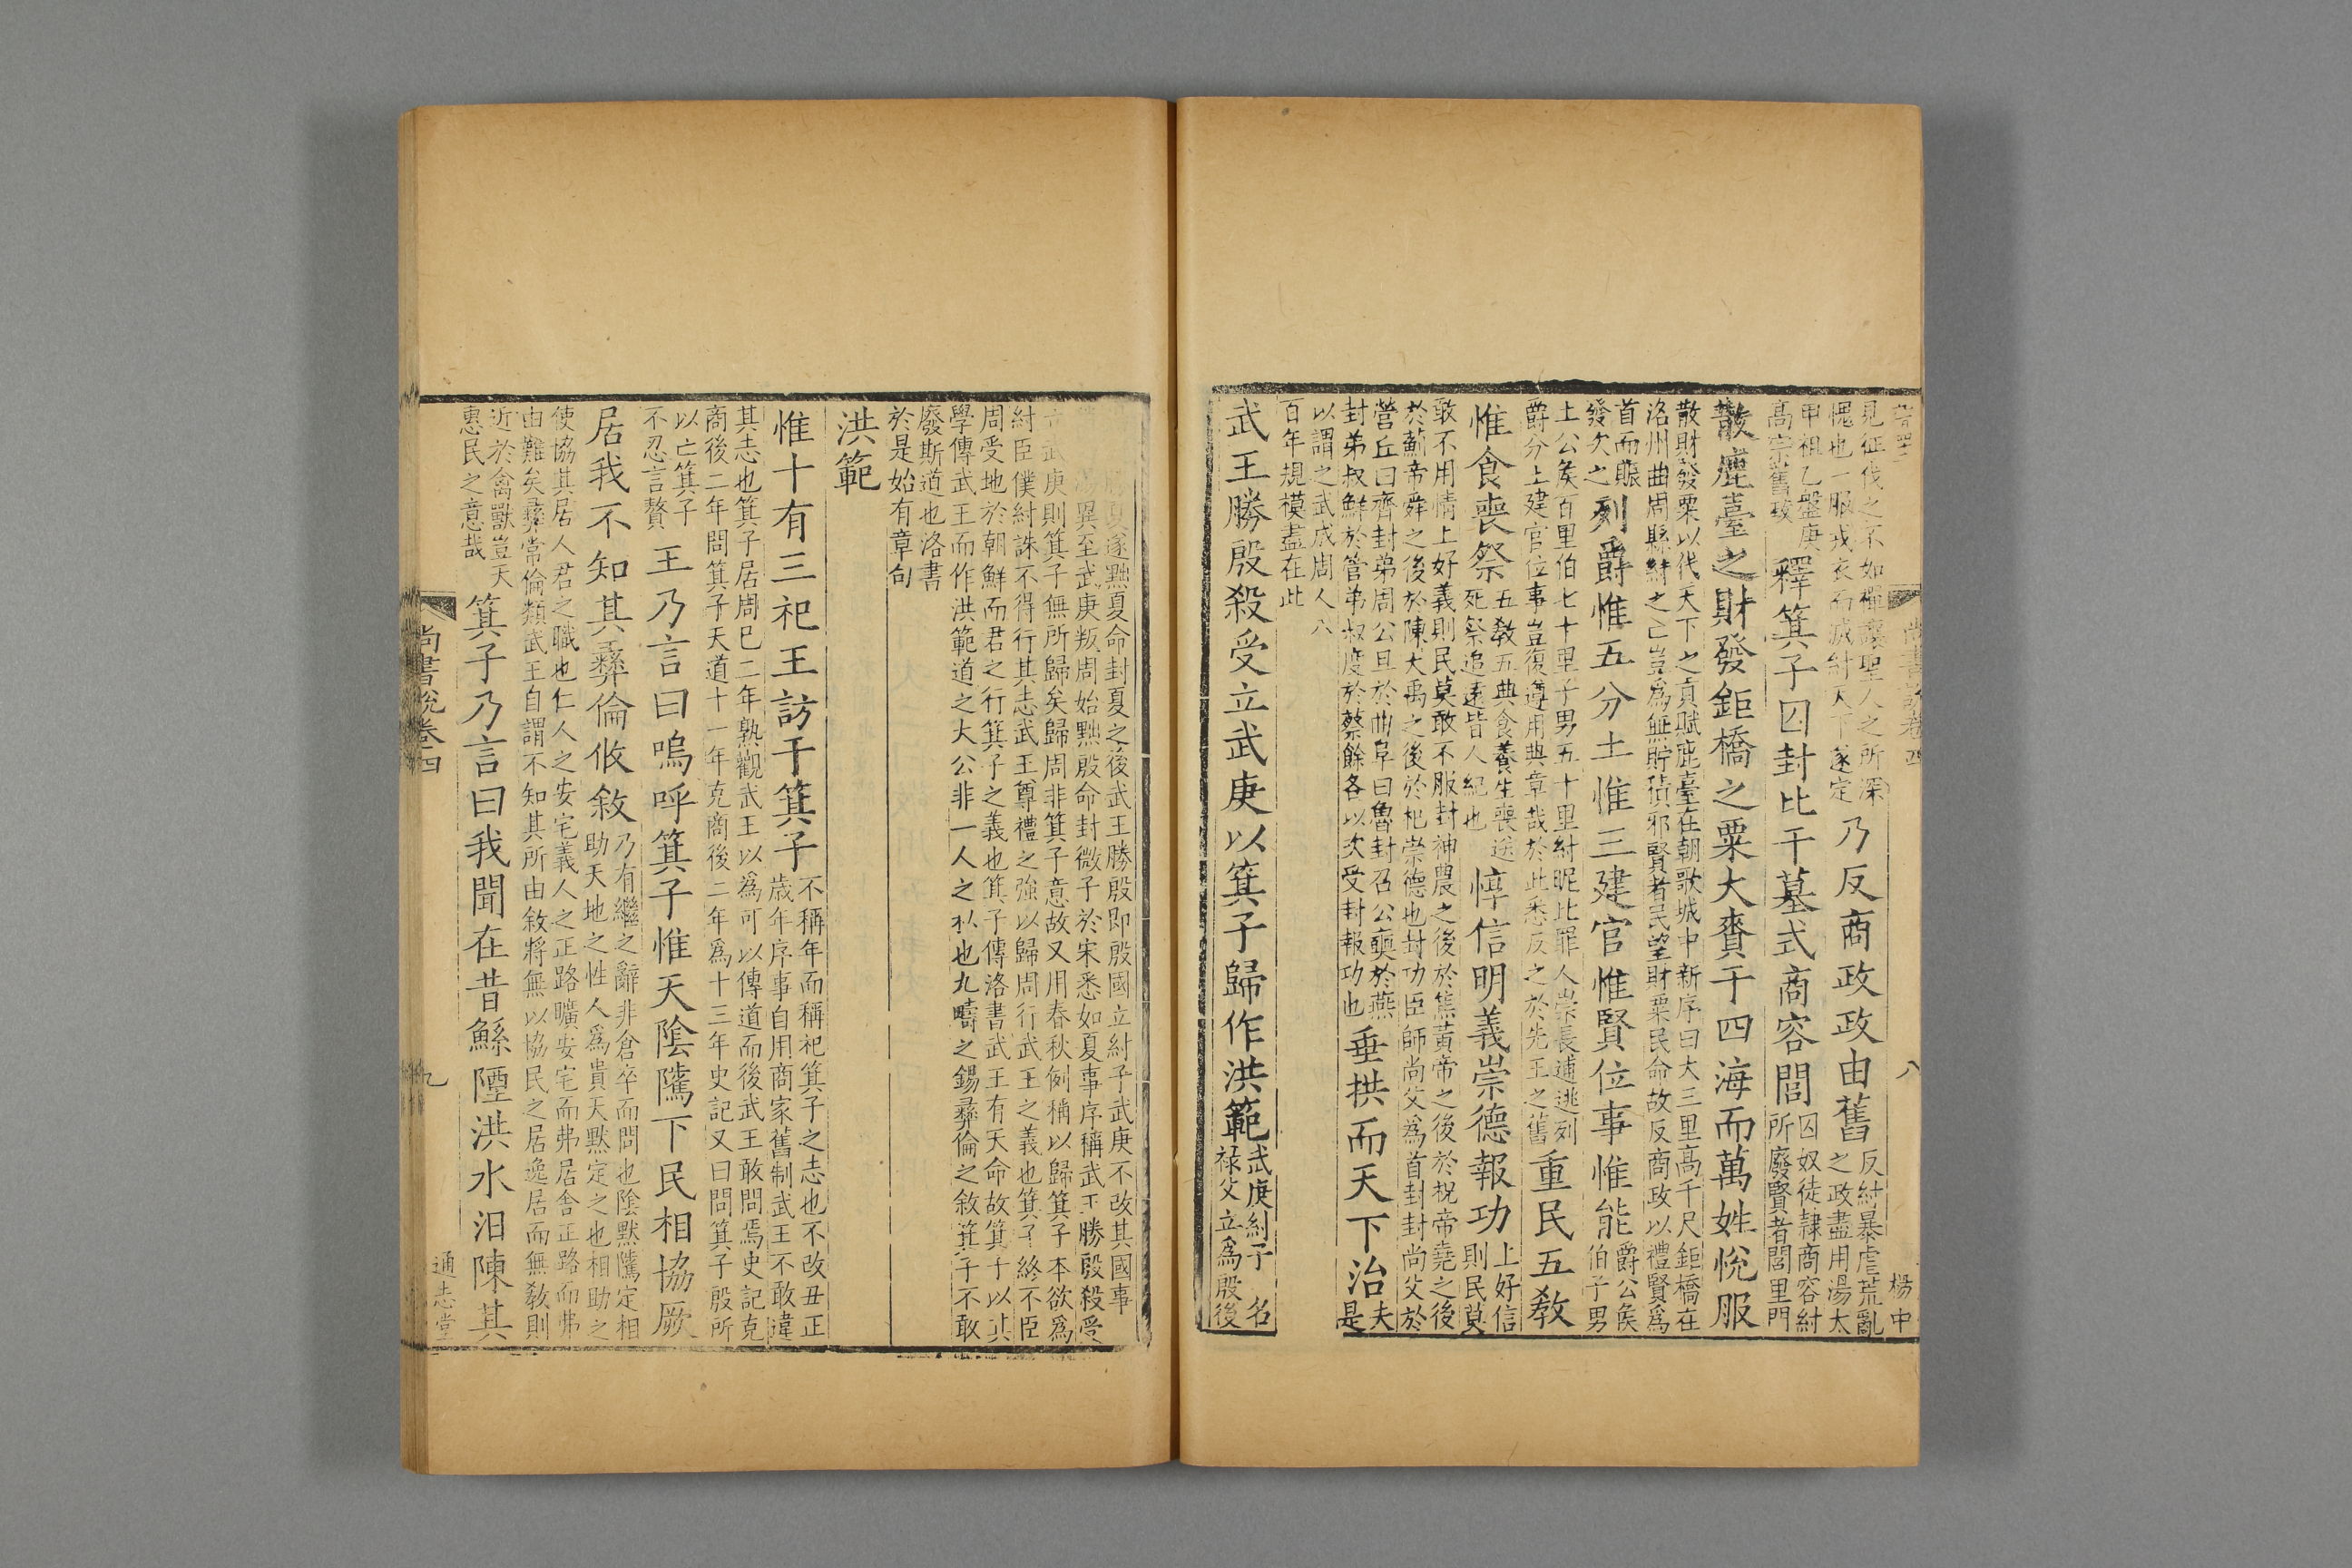 見征伐之不如禪讓聖人之所深
愧也一服戎衣而滅紂天下遂定
乃反商政政由舊
反紂暴虐荒亂
之政盡用湯太
甲祖乙盤庚
高宗舊政
釋箕子囚封比干墓式商容閭
囚奴徒隷商容紂
所廢賢者閭里門
散鹿臺之財發鉅橋之粟大賚于四海而萬姓悅服
散財發粟以代天下之貢賦鹿臺在朝歌城中新序曰大三里高千尺鉅橋在
洛州曲周縣紂之亡豈爲無貯積邪賢者民望財粟民命故反商政以禮賢爲
首而賑
發次之
列爵惟五分土惟三建官惟賢位事惟能
爵公侯
伯子男
土公侯百里伯七十里子男五十里紂昵比罪人崇長逋逃列
爵分土建官位事豈復遵用典章哉於此悉反之於先王之舊
重民五教
惟食喪祭
五教五典食養生喪送
死祭追遠皆人紀也
惇信明義崇德報功
上好信
則民莫
敢不用情上好義則民莫敢不服封神農之後於焦黃帝之後於祝帝堯之後
於薊帝舜之後於陳大禹之後於杞崇德也封功臣師尚父爲首封封尚父於
營丘曰齊封弟周公旦於曲阜曰魯封召公奭於燕
封弟叔鮮於管弟叔度於蔡餘各以次受封報功也
垂拱而天下治
夫
是
以謂之武成周人八
百年規模盡在此
武王勝殷殺受立武庚以箕子歸作洪範
武庚紂子名
祿父立爲殷後
尚書說卷四
八
楊中
夏遂黜夏命封夏之後武王勝殷即殷國立紂子武庚不改其國事
異至武庚叛周始黜殷命封微子於宋悉如夏事序稱武王勝殷殺受
武庚則箕子無所歸矣歸周非箕子意故又用春秋例稱以歸箕子本欲爲
紂臣僕紂誅不得行其志武王尊禮之強以歸周行武王之義也箕子終不臣
周受地於朝鮮而君之行箕子之義也箕子傳洛書武王有天命故箕子以其
學傳武王而作洪範道之大公非一人之私也九疇之錫彝倫之敘箕子不敢
廢斯道也洛書
於是始有章句
洪範
惟十有三祀王訪于箕子
不稱年而稱祀箕子之志也不改丑正
歲年序事自用商家舊制武王不敢違
其志也箕子居周已二年熟觀武王以爲可以傳道而後武王敢問焉史記克
商後二年問箕子天道十一年克商後二年爲十三年史記又曰問箕子殷所
以亡箕子
不忍言贅
王乃言曰嗚呼箕子惟天陰隲下民相協厥
居我不知其彝倫攸敘
乃有繼之辭非倉卒而問也陰默隲定相
助天地之性人爲貴天默定之也相助之
使協其居人君之職也仁人之安宅義人之正路曠安宅而弗居舍正路而弗
由難矣彝常倫類武王自謂不知其所由敘將無以協民之居逸居而無教則
近於禽獸豈天
惠民之意哉
箕子乃言曰我聞在昔鯀陻洪水汨陳其
尚書說卷四
九
通志堂